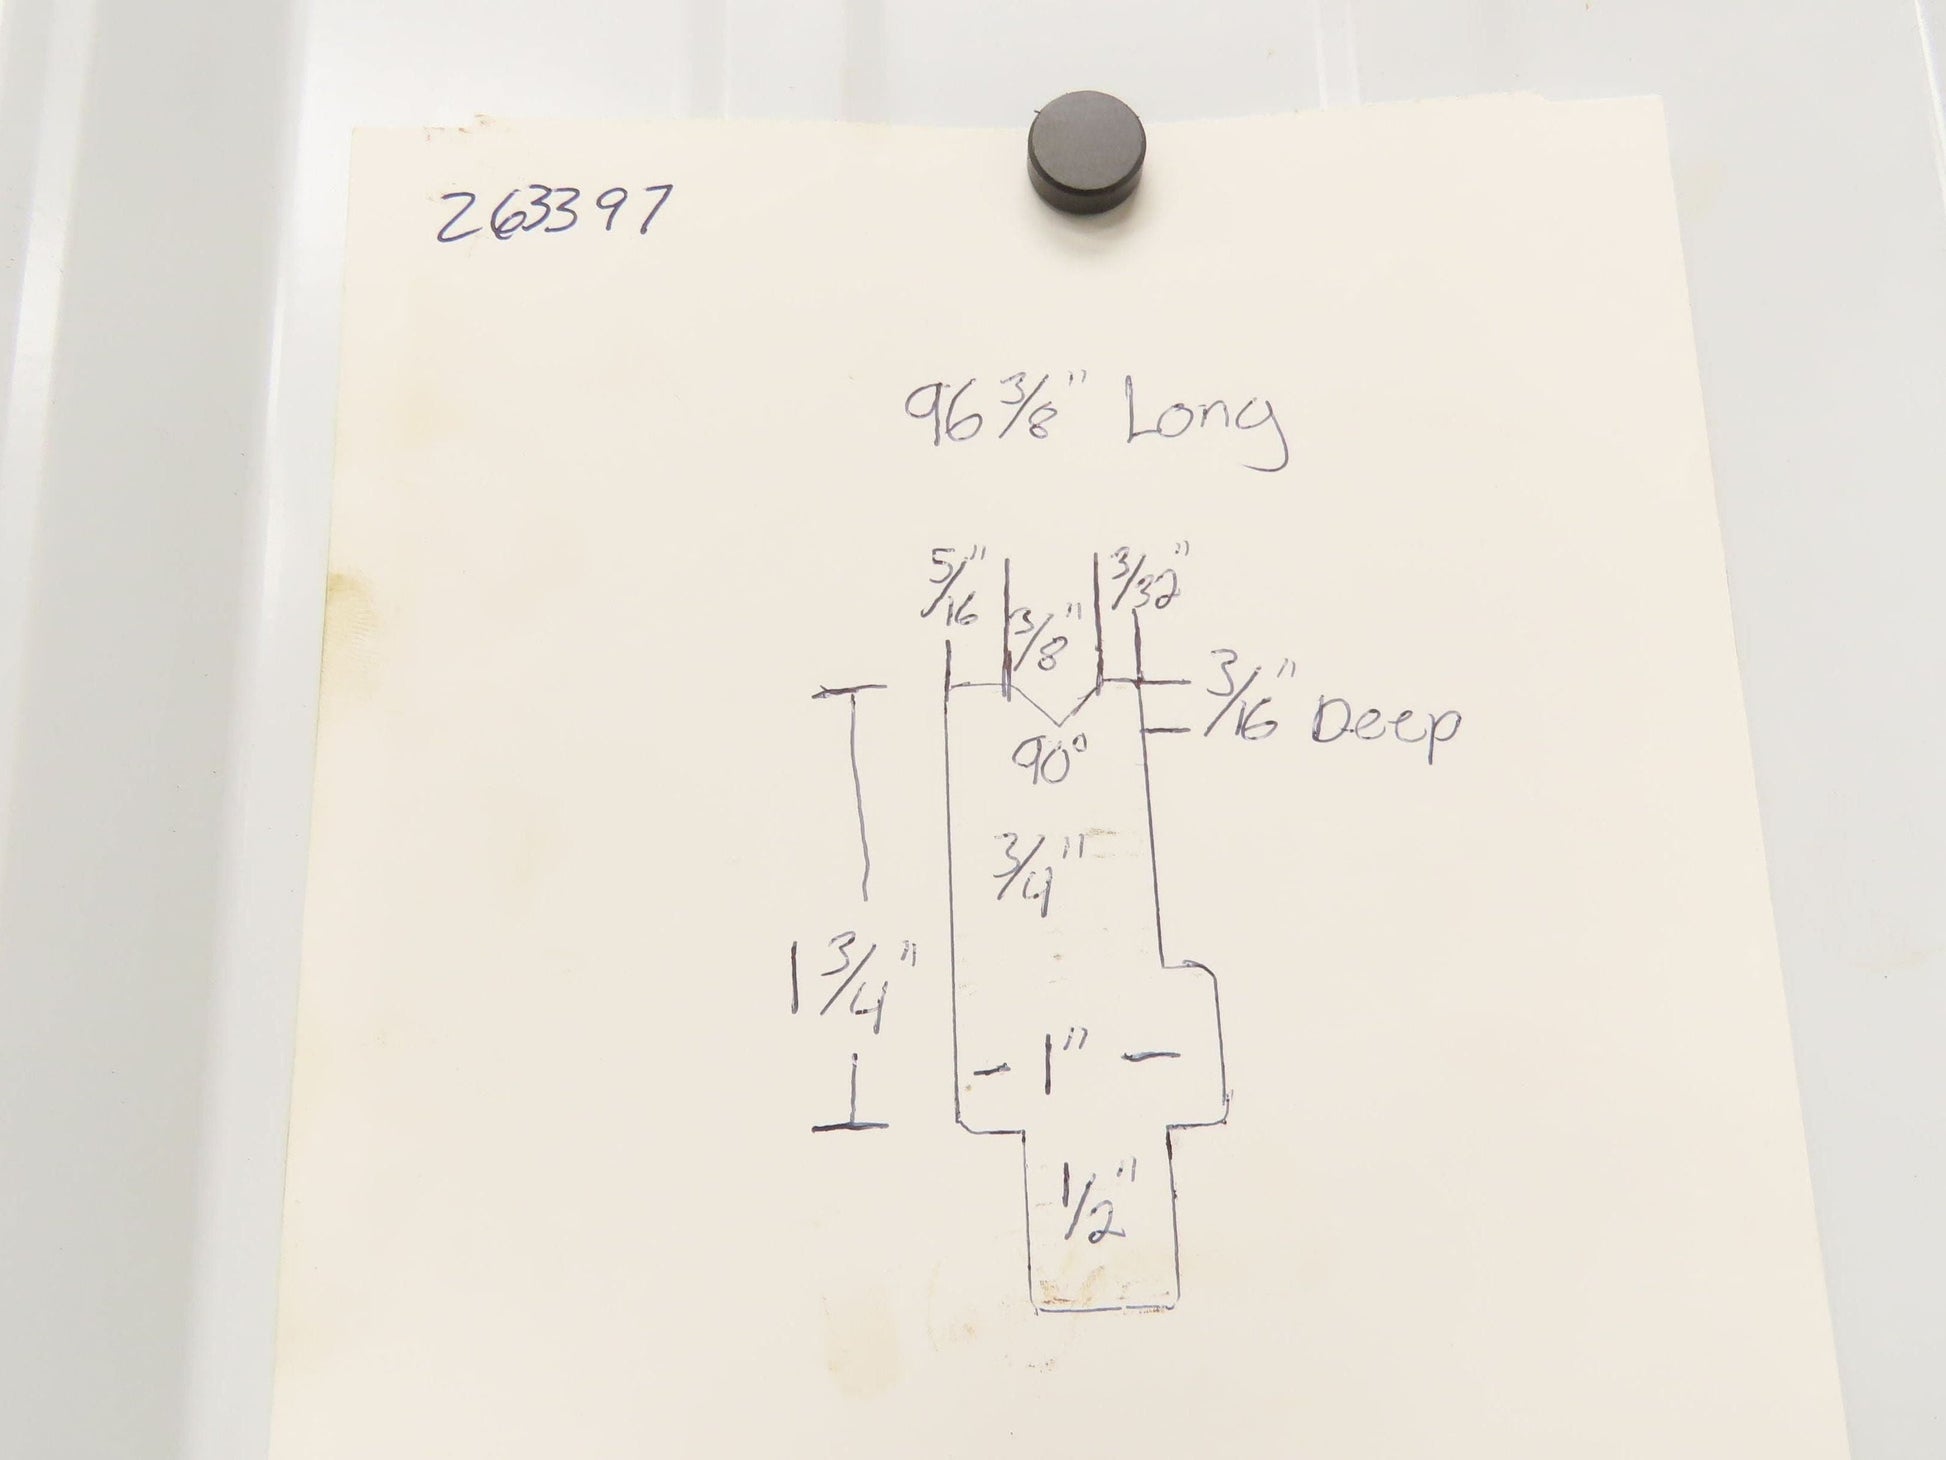 263397
96 3/8" Long
5/16"
3/8"
3/32"
3/16" Deep
90°
3/4"
1 3/4"
- 1" -
1/2"